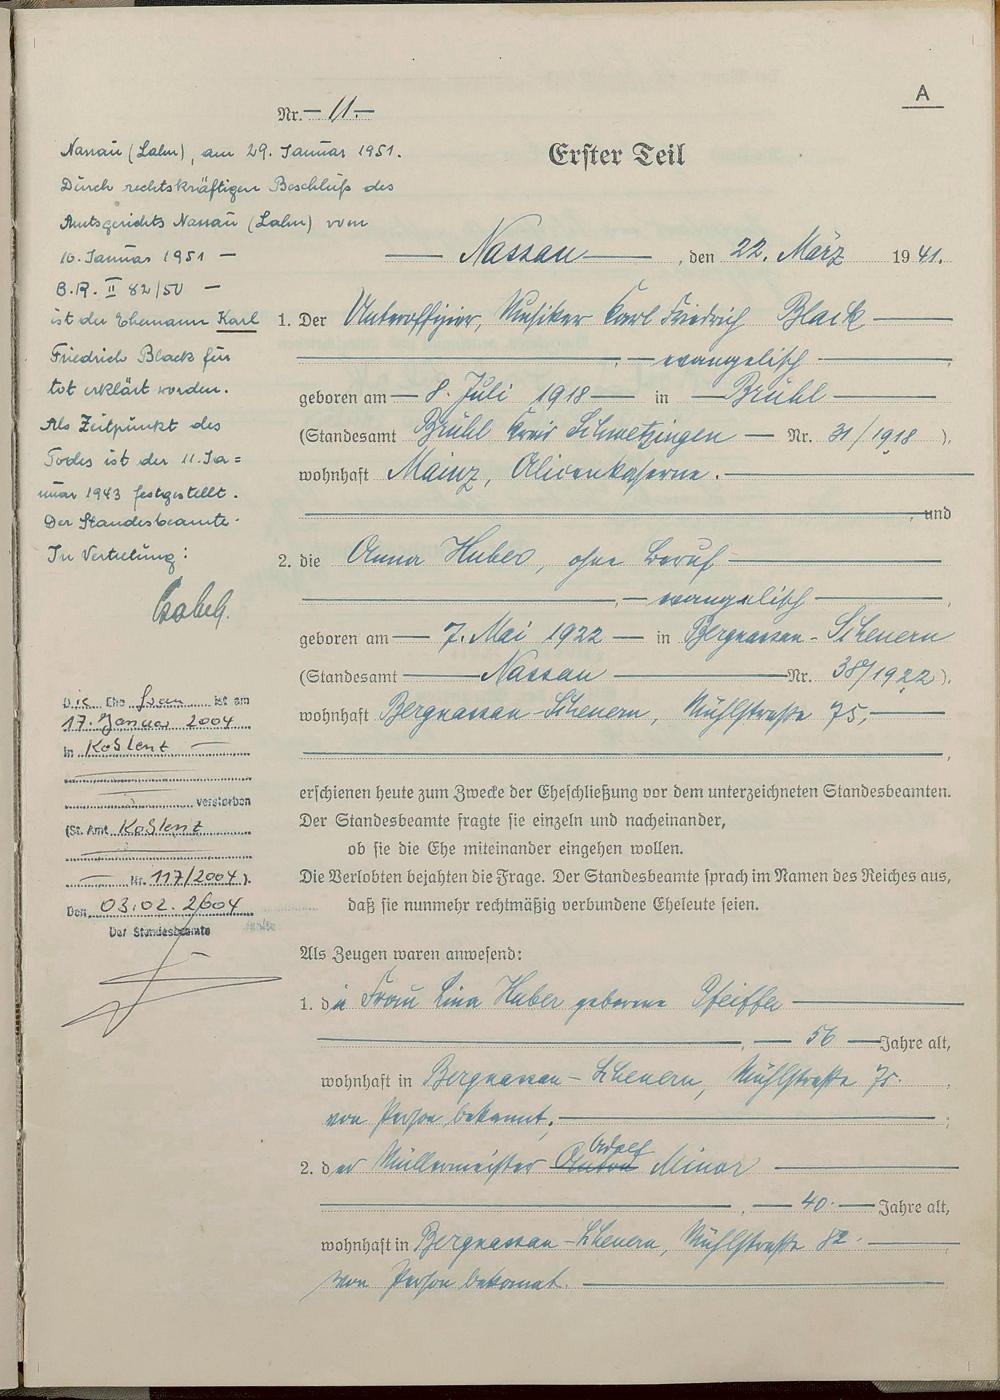 A
Nr. — 11. —
Erster Teil
Nassau (Lahn), am 29. Januar 1951.
Durch rechtskräftigen Beschluß des
Amtsgerichts Nassau (Lahn) vom
10. Januar 1951 —
B.R. II 82/50 —
ist der Ehemann Karl
Friedrich Black für
tot erklärt worden.
Als Zeitpunkt des
Todes ist der 11. Ja=
nuar 1943 festgestellt.
Der Standesbeamte.
In Vertretung:
Die Ehefrau ist am
17. Januar 2004
in Koblenz —
verstorben
(St. Amt Koblenz
— Nr. 117/2004).
Den 03.02.2004
Der Standesbeamte
— Nassau — , den 22. März 1941.
1. Der Unteroffizier, Musiker Karl Friedrich Black —
— , — evangelisch — ,
geboren am — 8. Juli 1918 — in — Brühl —
(Standesamt Brühl Kreis Schwetzingen — Nr. 31/1918 ),
wohnhaft Mainz, Alicenkaserne. —
— , und
2. die Anna Huber, ohne Beruf —
— , — evangelisch — ,
geboren am — 7. Mai 1922 — in Bergnassau-Scheuern
(Standesamt — Nassau — Nr. 38/1922 ),
wohnhaft Bergnassau-Scheuern, Mühlstraße 75, —
— ,
erschienen heute zum Zwecke der Eheschließung vor dem unterzeichneten Standesbeamten.
Der Standesbeamte fragte sie einzeln und nacheinander,
ob sie die Ehe miteinander eingehen wollen.
Die Verlobten bejahten die Frage. Der Standesbeamte sprach im Namen des Reiches aus,
daß sie nunmehr rechtmäßig verbundene Eheleute seien.
Als Zeugen waren anwesend:
1. die Frau Lina Huber geborene Pfeiffer —
— , — 56 — Jahre alt,
wohnhaft in Bergnassau-Scheuern, Mühlstraße 75.
von Person bekannt. — ;
Adolf
2. der Müllermeister Anton Minor —
— , — 40. — Jahre alt,
wohnhaft in Bergnassau-Scheuern, Mühlstraße 82. —
von Person bekannt. —